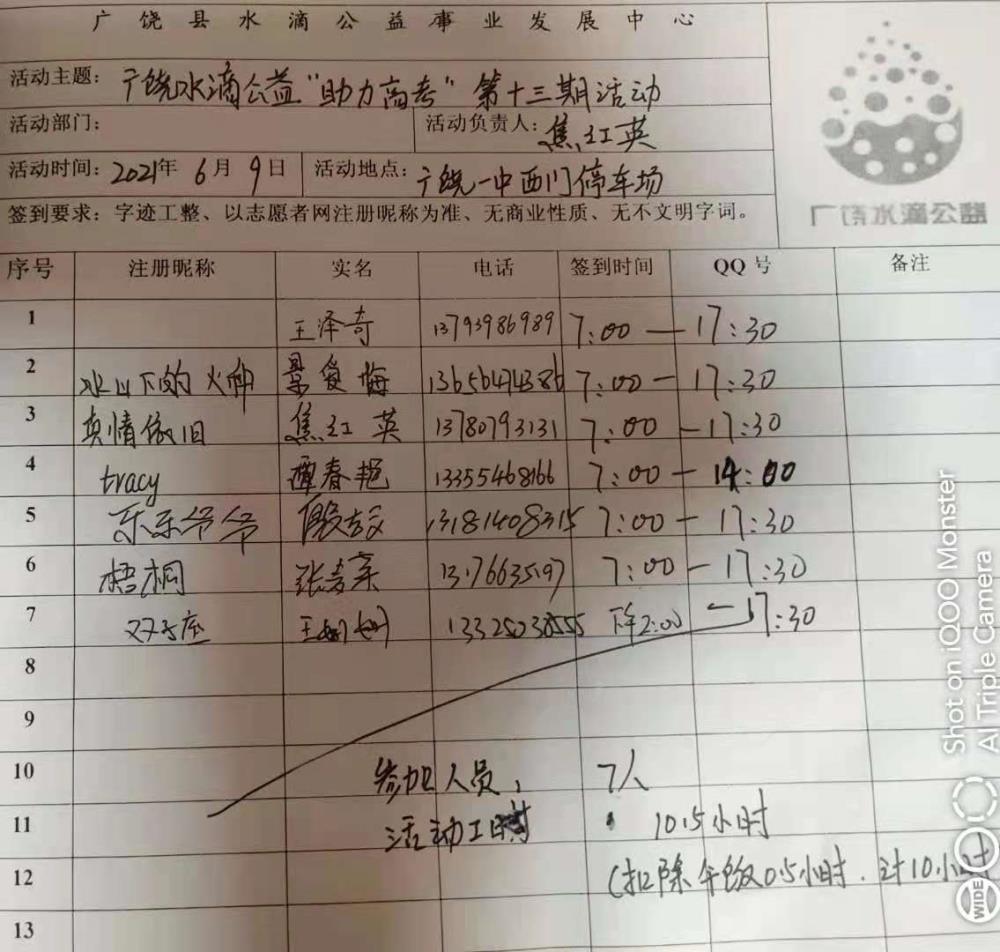 广饶县水滴公益事业发展中心
活动主题：广饶水滴公益“助力高考”第十三期活动
活动部门：
活动负责人：焦红英
活动时间：2021年 6月 9日
活动地点：广饶一中西门停车场
签到要求：字迹工整、以志愿者网注册昵称为准、无商业性质、无不文明字词。
广饶水滴公益
序号 注册昵称 实名 电话 签到时间 QQ号 备注
1 王泽奇 13793986989 7:00 — 17:30
2 冰山下的火种 景爱梅 13656474386 7:00 — 17:30
3 真情依旧 焦红英 13780793131 7:00 — 17:30
4 tracy 谭春艳 13355468166 7:00 — 14:00
5 乐乐爷爷 13181408315 7:00 — 17:30
6 梧桐 7:00 — 17:30
7 双子座 下午2:00 — 17:30
8
9
10 参加人员： 7人
11 活动工时 10.5小时
12 (扣除午饭0.5小时. 计10小时
13
Shot on iQOO Monster
AI Triple Camera
WIDE